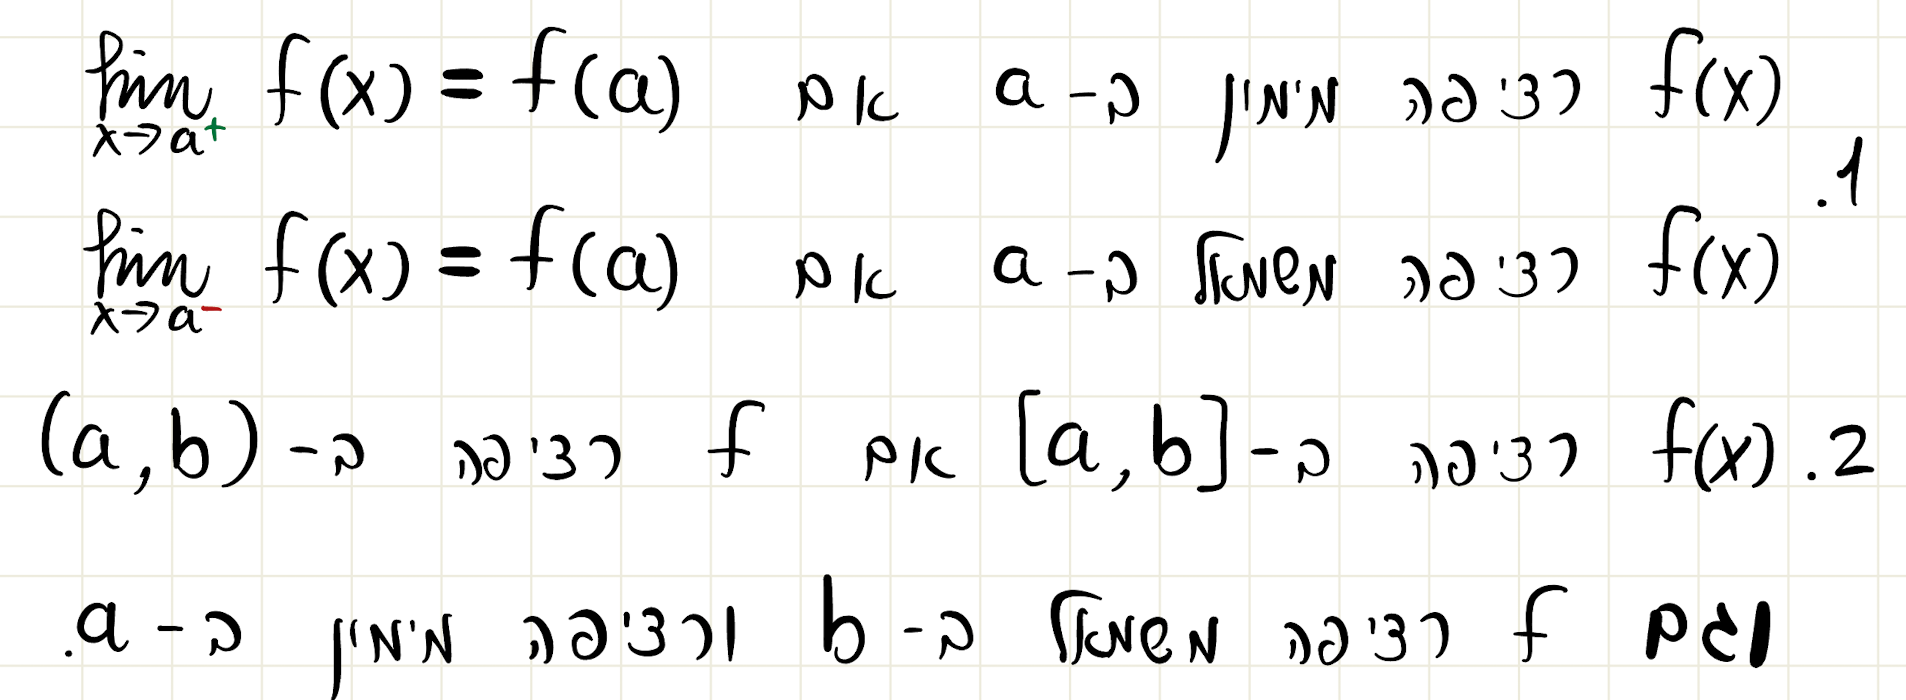 f(x) רציפה מימין ב- a אם lim x→a⁺ f(x) = f(a)
.1
f(x) רציפה משמאל ב- a אם lim x→a⁻ f(x) = f(a)
2. f(x) רציפה ב- [a,b] אם f רציפה ב- (a,b)
וגם f רציפה משמאל ב- b ורציפה מימין ב- a.